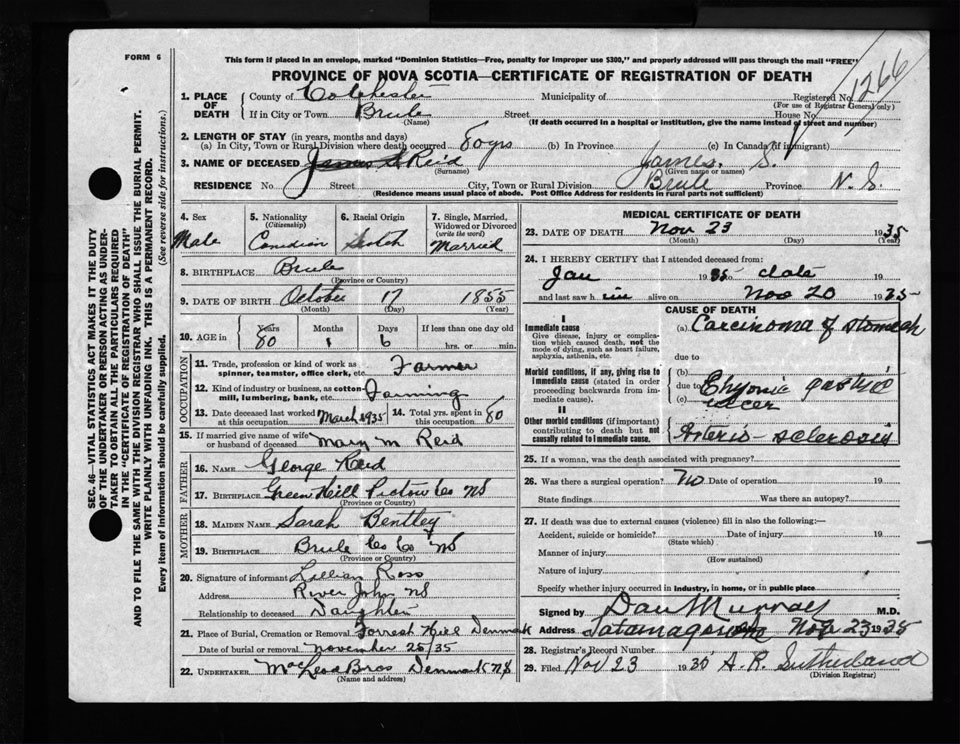 FORM 6
This form if placed in an envelope, marked "Dominion Statistics—Free, penalty for improper use $300," and properly addressed will pass through the mail "FREE"
PROVINCE OF NOVA SCOTIA—CERTIFICATE OF REGISTRATION OF DEATH
1266
1. PLACE OF DEATH
County of Colchester Municipality of Registered No.
(For use of Registrar General only)
If in City or Town Brule Street House No.
(Name) (If death occurred in a hospital or institution, give the name instead of street and number)
2. LENGTH OF STAY (in years, months and days)
(a) In City, Town or Rural Division where death occurred 80 yrs (b) In Province (c) In Canada (if immigrant)
3. NAME OF DECEASED James S Reid James. S.
(Surname) (Given name or names)
RESIDENCE No. Street City, Town or Rural Division Brule Province N. S.
(Residence means usual place of abode. Post Office Address for Residents in rural parts not sufficient)
SEC. 46—VITAL STATISTICS ACT MAKES IT THE DUTY
OF THE UNDERTAKER OR PERSON ACTING AS UNDER-
TAKER TO OBTAIN ALL THE PARTICULARS REQUIRED
IN THE "CERTIFICATE OF REGISTRATION OF DEATH"
AND TO FILE THE SAME WITH THE DIVISION REGISTRAR WHO SHALL ISSUE THE BURIAL PERMIT.
WRITE PLAINLY WITH UNFADING INK. THIS IS A PERMANENT RECORD.
Every item of information should be carefully supplied. (See reverse side for instructions.)
4. Sex
Male
5. Nationality
(Citizenship)
Canadian
6. Racial Origin
Scotch
7. Single, Married, Widowed or Divorced
(write the word)
Married
8. BIRTHPLACE Brule
(Province or Country)
9. DATE OF BIRTH October 17 1855
(Month) (Day) (Year)
10. AGE in Years Months Days If less than one day old
80 1 6 hrs. or min.
OCCUPATION
11. Trade, profession or kind of work as spinner, teamster, office clerk, etc. Farmer
12. Kind of industry or business, as cotton-mill, lumbering, bank, etc. Farming
13. Date deceased last worked at this occupation March 1935
14. Total yrs. spent in this occupation 80
15. If married give name of wife or husband of deceased Mary M Reid
FATHER
16. NAME George Reid
17. BIRTHPLACE Green Hill Pictou Co NS
(Province or Country)
MOTHER
18. MAIDEN NAME Sarah Bentley
19. BIRTHPLACE Brule Col Co NS
(Province or Country)
20. Signature of informant Lillian Ross
Address River John NS
Relationship to deceased Daughter
21. Place of Burial, Cremation or Removal Forrest Hill Denmark
Date of burial or removal November 25/35
22. UNDERTAKER MacLeod Bros Denmark NS
(Name and address)
MEDICAL CERTIFICATE OF DEATH
23. DATE OF DEATH Nov 23 1935
(Month) (Day) (Year)
24. I HEREBY CERTIFY that I attended deceased from:
Jan 1935 date 19
and last saw h im alive on Nov 20 1935
CAUSE OF DEATH
I
Immediate cause
Give disease, injury or complication which caused death, not the mode of dying, such as heart failure, asphyxia, asthenia, etc.
(a) Carcinoma of stomach
due to
Morbid conditions, if any, giving rise to immediate cause (stated in order proceeding backwards from immediate cause).
(b)
due to Chronic gastric
(c) ulcer
II
Other morbid conditions (if important) contributing to death but not causally related to immediate cause.
Arterio-sclerosis
25. If a woman, was the death associated with pregnancy?
26. Was there a surgical operation? No Date of operation 19
State findings Was there an autopsy?
27. If death was due to external causes (violence) fill in also the following:—
Accident, suicide or homicide? Date of injury 19
(State which)
Manner of injury
(How sustained)
Nature of injury
Specify whether injury occurred in industry, in home, or in public place
Signed by Dan Murray M.D.
Address Tatamagouche Nov 23 1935
28. Registrar's Record Number
29. Filed Nov 23 1935 A. R. Sutherland
(Division Registrar)